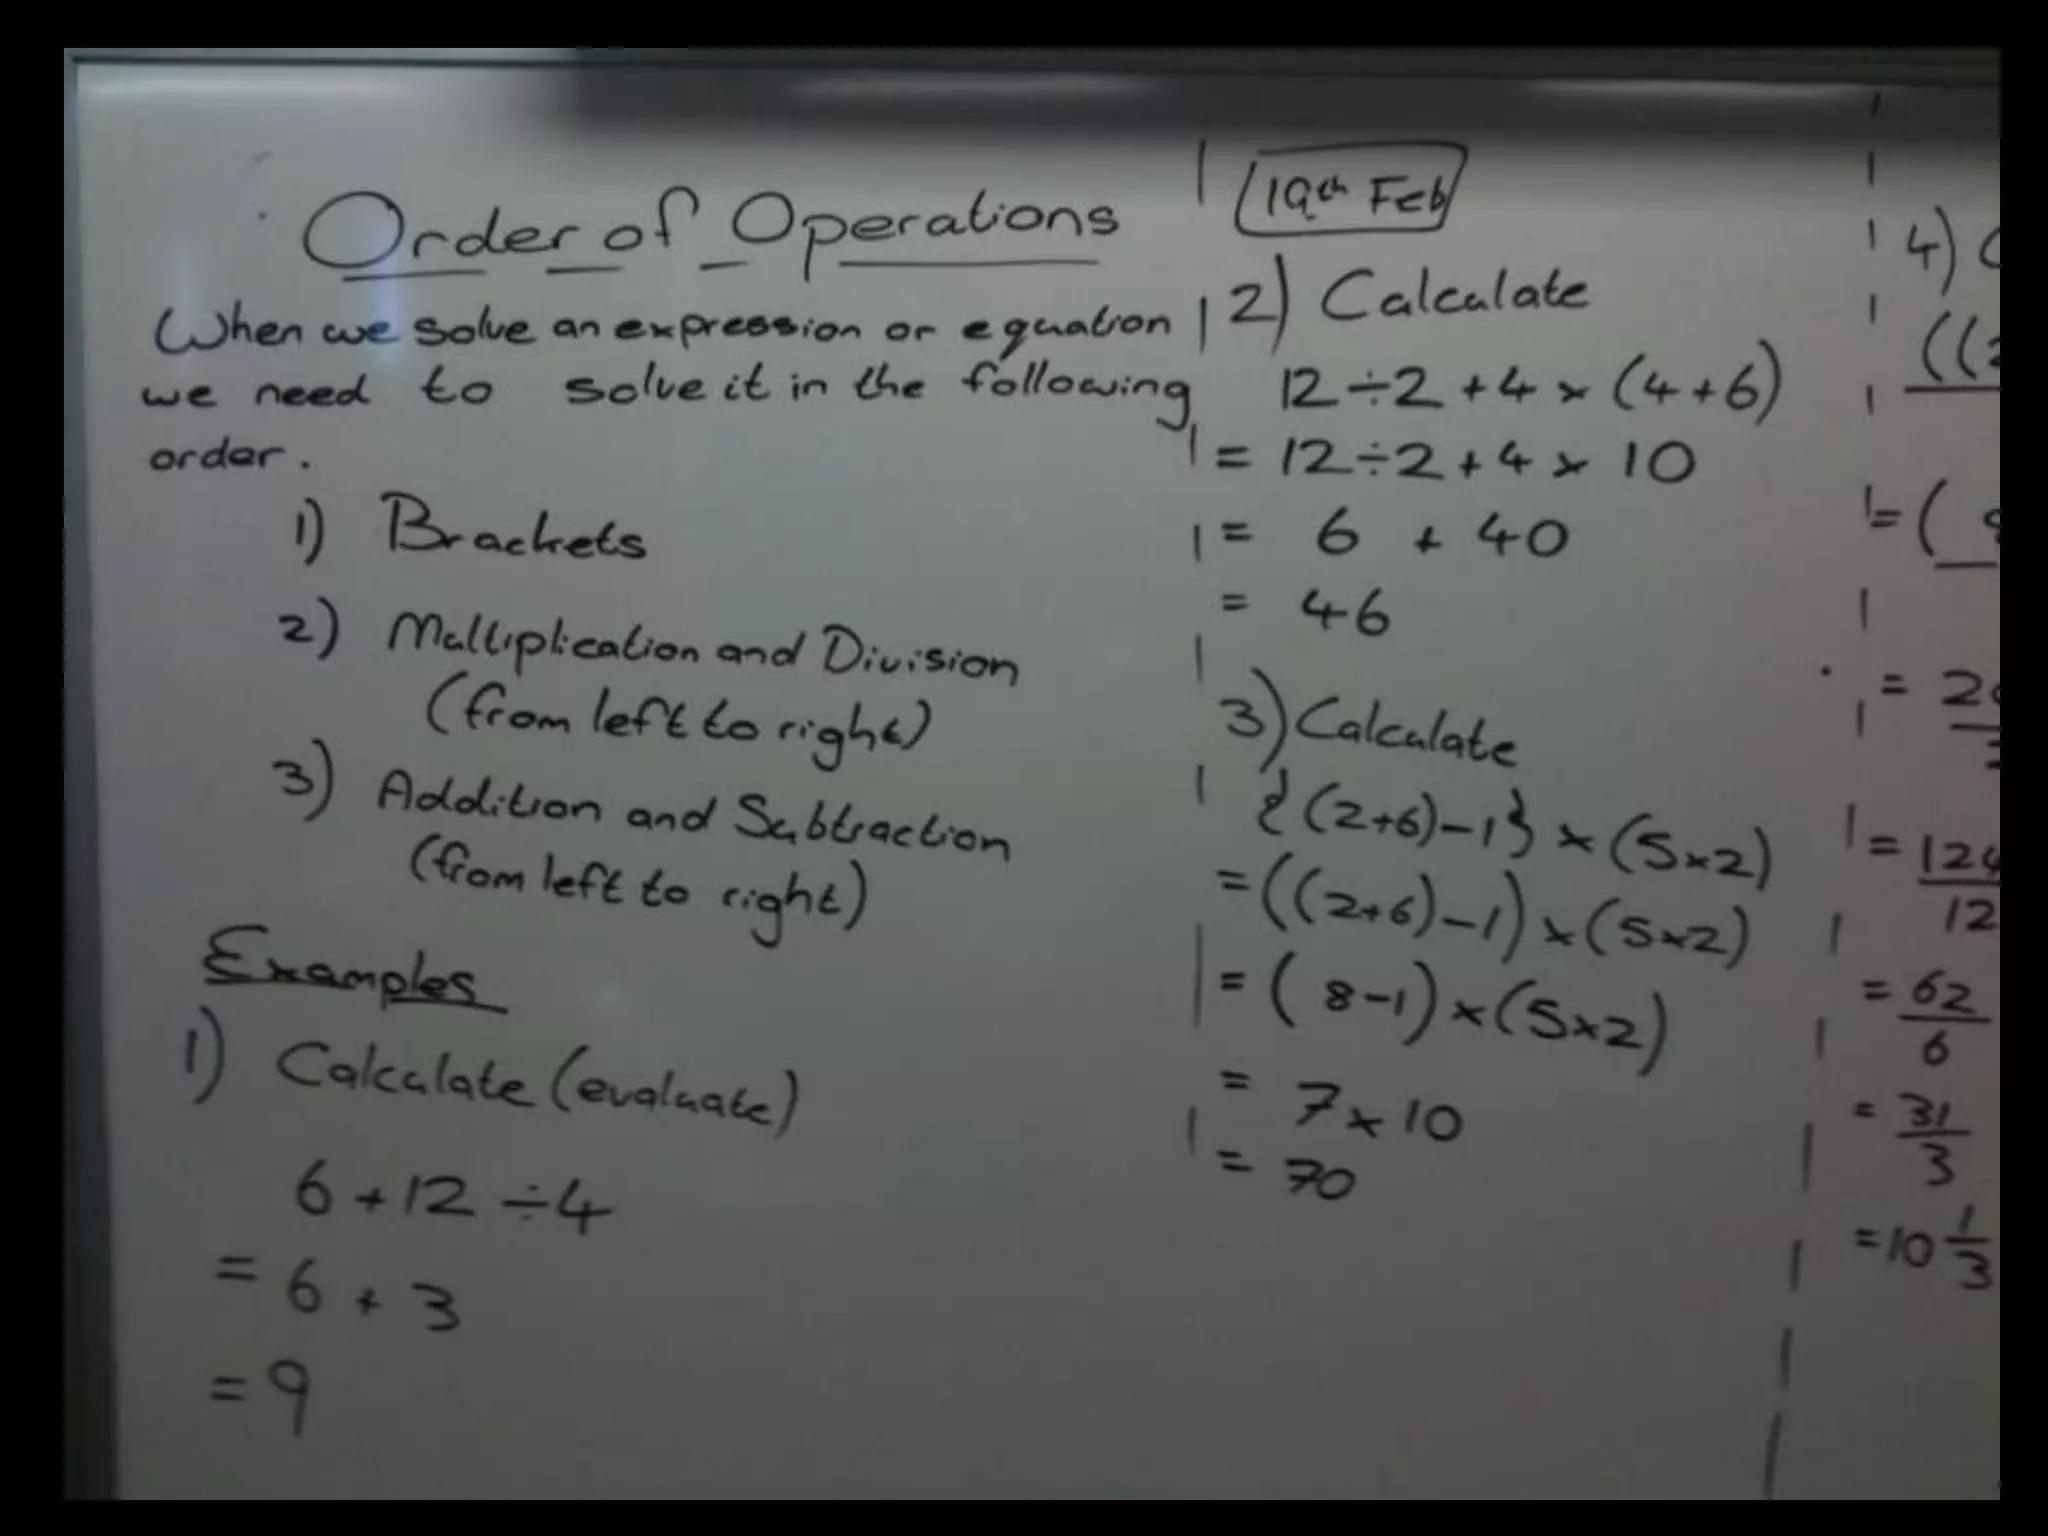 Order of Operations
When we solve an expression or equation
we need to solve it in the following
order.
1) Brackets
2) Multiplication and Division
(from left to right)
3) Addition and Subtraction
(from left to right)
Examples
1) Calculate (evaluate)
6 + 12 ÷ 4
= 6 + 3
= 9
19th Feb
2) Calculate
12 ÷ 2 + 4 × (4 + 6)
= 12 ÷ 2 + 4 × 10
= 6 + 40
= 46
3) Calculate
{(2+6)-1} × (5×2)
= ((2+6)-1) × (5×2)
= (8-1) × (5×2)
= 7 × 10
= 70
4)
((
= (
=
= 124
12
= 62
6
= 31
3
= 10 1
3